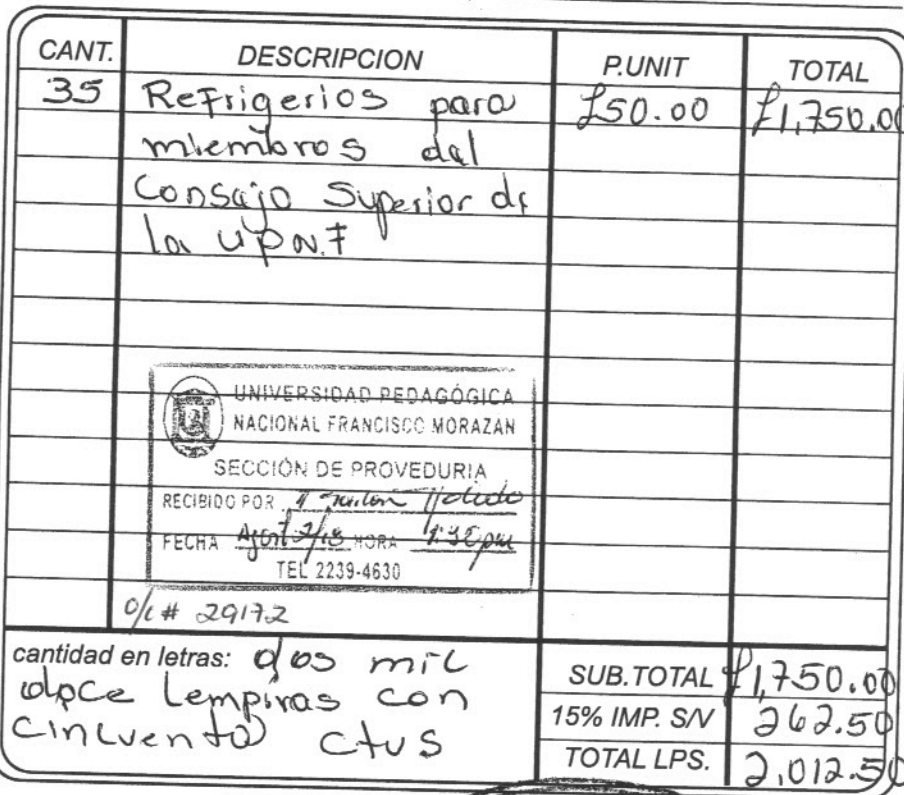 CANT. DESCRIPCION P.UNIT TOTAL
35 Refrigerios para £50.00 £1,750.00
miembros del
Consejo Superior de
la UPN.F
UNIVERSIDAD PEDAGÓGICA
NACIONAL FRANCISCO MORAZAN
SECCIÓN DE PROVEDURIA
RECIBIDO POR
FECHA HORA
TEL 2239-4630
o/c # 29172
cantidad en letras: dos mil
doce Lempiras con
cincuenta ctvs
SUB.TOTAL £1,750.00
15% IMP. S/V 262.50
TOTAL LPS. 2,012.50